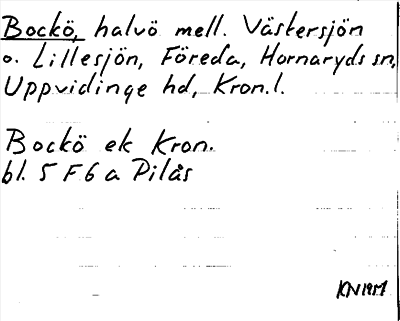 Bockö, halvö mell. Västersjön
o. Lillesjön, Föreda, Hornaryds sn,
Uppvidinge hd, Kron.l.
Bockö ek Kron.
bl. 5 F 6 a Pilås